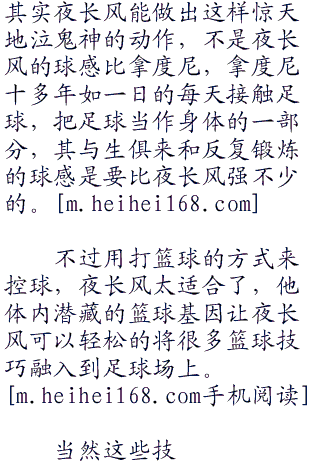 其实夜长风能做出这样惊天
地泣鬼神的动作，不是夜长
风的球感比拿度尼，拿度尼
十多年如一日的每天接触足
球，把足球当作身体的一部
分，其与生俱来和反复锻炼
的球感是要比夜长风强不少
的。[m.heihei168.com]
不过用打篮球的方式来
控球，夜长风太适合了，他
体内潜藏的篮球基因让夜长
风可以轻松的将很多篮球技
巧融入到足球场上。
[m.heihei168.com手机阅读]
当然这些技